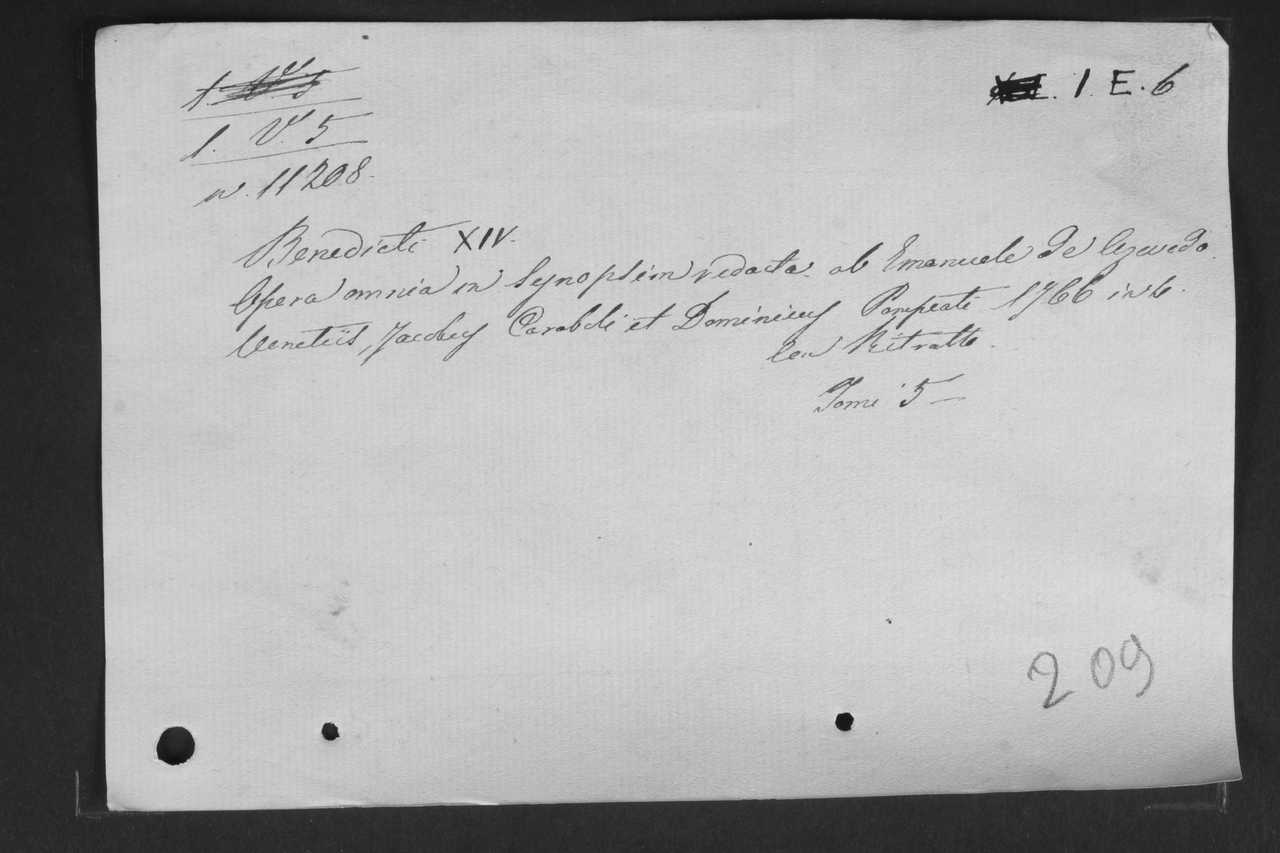 1. V. 5
1. V. 5
n. 11208.
1. E. 6
Benedicti XIV.
Opera omnia in Synopsim redacta ab Emanuele De Azevedo.
Venetiis, Jacobus Caroboli et Dominicus Pompeati 1766 in 6.
Con Ritratto.
Tomi 5
209